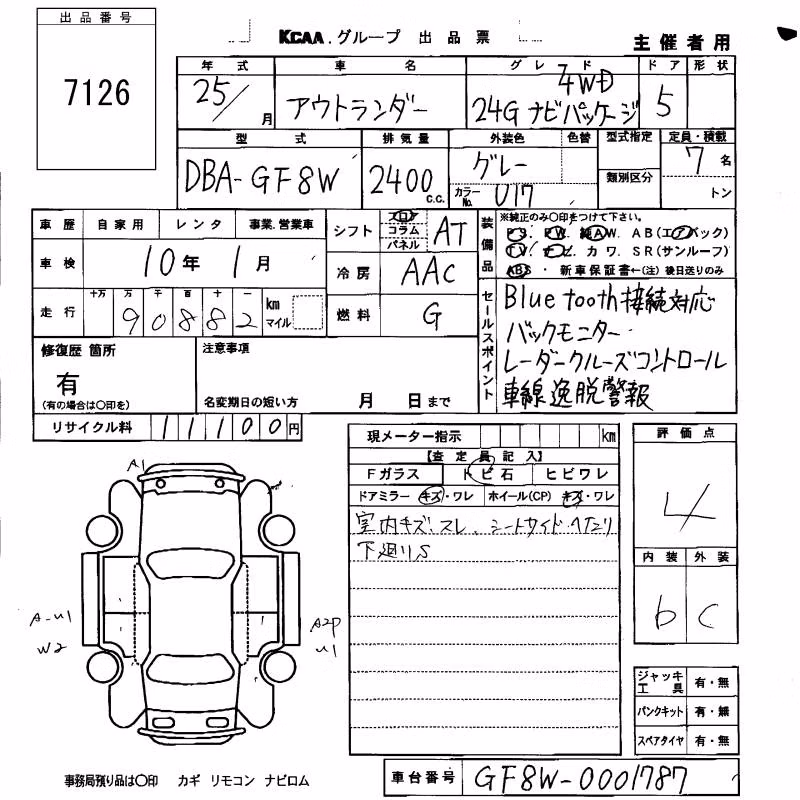 出品番号
7126
KCAA.グループ 出品票
主催者用
年式 車名 グレード ドア 形状
25/ 月 アウトランダー 4WD 24G ナビパッケージ 5
型式 排気量 外装色 色替 型式指定 定員・積載
DBA-GF8W 2400 c.c. グレー 類別区分 7 名
カラーNo. U17 トン
車歴 自家用 レンタ 事業.営業車
車検 10年 1月
走行 十万 万 千 百 十 一 km マイル
90882
シフト フロア コラム パネル AT
冷房 AAC
燃料 G
装備品 ※純正のみ〇印をつけて下さい。
PS. PW. 純AW. AB(エアバック)
TV. ナビ. カワ. SR(サンルーフ)
ABS . 新車保証書←(注)後日送りのみ
セールスポイント
Blue tooth接続対応
バックモニター
レーダークルーズコントロール
車線逸脱警報
修復歴 箇所 注意事項
有
(有の場合は〇印を) 名変期日の短い方 月 日まで
リサイクル料 11100円
現メーター指示 km
【査定員記入】
Fガラス トビ石 ヒビワレ
ドアミラー キズ・ワレ ホイール(CP) キズ・ワレ
室内キズ.スレ、シートサイド.ヘタリ
下廻りS
評価点
4
内装 外装
b c
A1
A-U1
W2
A2P
U1
ジャッキ工具 有・無
パンクキット 有・無
スペアタイヤ 有・無
事務局預り品は〇印 カギ リモコン ナビロム
車台番号 GF8W-0001787